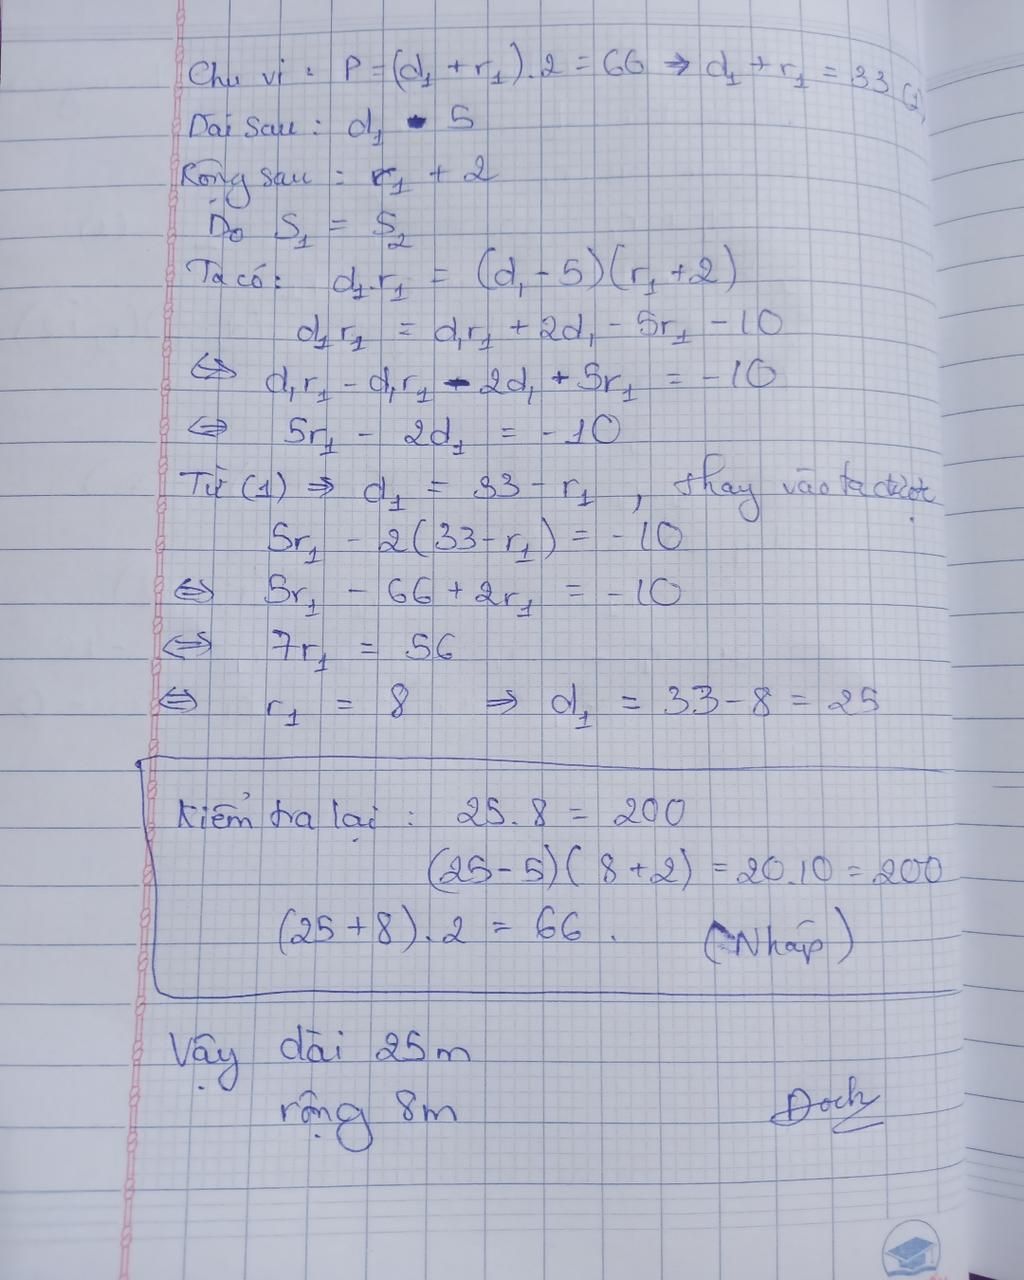 Chu vi : P = (d₁ + r₁).2 = 66 ⇒ d₁ + r₁ = 33 (1)
Dài sau : d₁ - 5
Rộng sau = r₁ + 2
Do S₁ = S₂
Ta có : d₁.r₁ = (d₁ - 5)(r₁ + 2)
d₁r₁ = d₁r₁ + 2d₁ - 5r₁ - 10
⇔ d₁r₁ - d₁r₁ - 2d₁ + 5r₁ = -10
⇔ 5r₁ - 2d₁ = -10
Từ (1) ⇒ d₁ = 33 - r₁ , thay vào ta được
5r₁ - 2(33 - r₁) = -10
⇔ 5r₁ - 66 + 2r₁ = -10
⇔ 7r₁ = 56
⇔ r₁ = 8 ⇒ d₁ = 33 - 8 = 25
Kiểm tra lại : 25.8 = 200
(25 - 5)(8 + 2) = 20.10 = 200
(25 + 8).2 = 66 . (Nháp)
Vậy dài 25m
rộng 8m